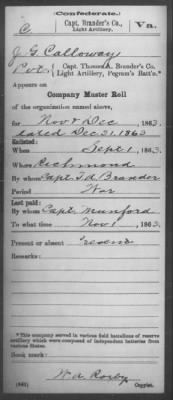 (Confederate.)
C Capt. Brander's Co., Va.
Light Artillery.
J. G. Calloway
Pvt., Capt. Thomas A. Brander's Co.
Light Artillery, Pegram's Batt'n.*
Appears on
Company Muster Roll
of the organization named above,
for Nov & Dec, 1863.
dated Dec 31, 1863
Enlisted:
When Sept 1, 1863.
Where Richmond
By whom Capt. T. A. Brander
Period War
Last paid:
By whom Capt. Munford
To what time Nov 1, 1863.
Present or absent Present
Remarks:
*This company served in various field battalions of reserve
artillery which were composed of independent batteries from
various States.
Book mark:
(642)
Copyist.